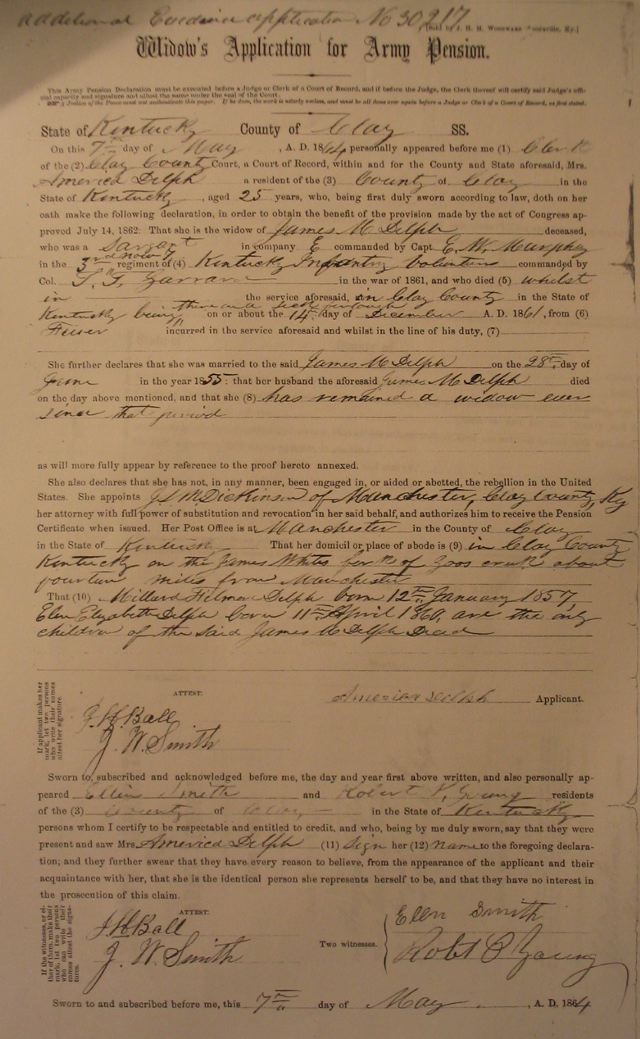 additional Evidence application No 30,217
[Sold by J. H. H. Woodward
Widow's Application for Army Pension.
This Army Pension Declaration must be executed before a Judge or Clerk of a Court of Record, and if before the Judge, the Clerk thereof will certify said Judge's official capacity and signature and attest the same under the seal of the Court.
Justice of the Peace must not authenticate this paper. If he does, the work is utterly useless, and must be all done over again before a Judge or Clerk of a Court of Record, as first stated.
State of Kentucky County of Clay SS.
On this 7th day of May, A. D. 1864 personally appeared before me (1) Clerk
of the (2) Clay County Court, a Court of Record, within and for the County and State aforesaid, Mrs.
America Delph a resident of the (3) County of Clay in the
State of Kentucky, aged 25 years, who, being first duly sworn according to law, doth on her
oath make the following declaration, in order to obtain the benefit of the provision made by the act of Congress ap-
proved July 14, 1862: That she is the widow of James M Delph deceased,
who was a Sargant in company E commanded by Capt E. W. Murphey
in the 3rd now 7 regiment of (4) Kentucky Infantry Volunteers commanded by
Col. T. T. Garrard in the war of 1861, and who died (5) whilst
in the service aforesaid, in Clay County in the State of
Kentucky being there on a sick furlough on or about the 14th day of December A. D. 1861, from (6)
Feever incurred in the service aforesaid and whilst in the line of his duty, (7)
She further declares that she was married to the said James M Delph on the 28th day of
June in the year 1855: that her husband the aforesaid James M Delph died
on the day above mentioned, and that she (8) has remained a widow ever
since that period
as will more fully appear by reference to the proof hereto annexed.
She also declares that she has not, in any manner, been engaged in, or aided or abetted, the rebellion in the United
States. She appoints J L McDickinson of Manchester, Clay County Ky
her attorney with full power of substitution and revocation in her said behalf, and authorizes him to receive the Pension
Certificate when issued. Her Post Office is at Manchester in the County of Clay
in the State of Kentucky That her domicil or place of abode is (9) in Clay County
Kentucky on the James Whites of Goos creek about
fourteen miles from Manchester
That (10) Millard Filmore Delph born 12th January 1857,
Elen Elizabeth Delph born 11th April 1860, are the only
children of the said James M Delph Dead
If applicant makes her mark, let two persons who write their names attest her signature.
ATTEST:
J. H. Ball
J. W. Smith
America Delph Applicant.
Sworn to, subscribed and acknowledged before me, the day and year first above written, and also personally ap-
peared Ellen Smith and Robert P. Young residents
of the (3) County of Clay in the State of Kentucky
persons whom I certify to be respectable and entitled to credit, and who, being by me duly sworn, say that they were
present and saw Mrs. America Delph (11) Sign her (12) Name to the foregoing declara-
tion; and they further swear that they have every reason to believe, from the appearance of the applicant and their
acquaintance with her, that she is the identical person she represents herself to be, and that they have no interest in
the prosecution of this claim.
If the witnesses, or either of them, make their mark, let two persons who can write their names attest the signatures.
ATTEST:
J. H. Ball
J. W. Smith
Two witnesses.
Ellen Smith
Robt P Young
Sworn to and subscribed before me, this 7th day of May, A. D. 1864